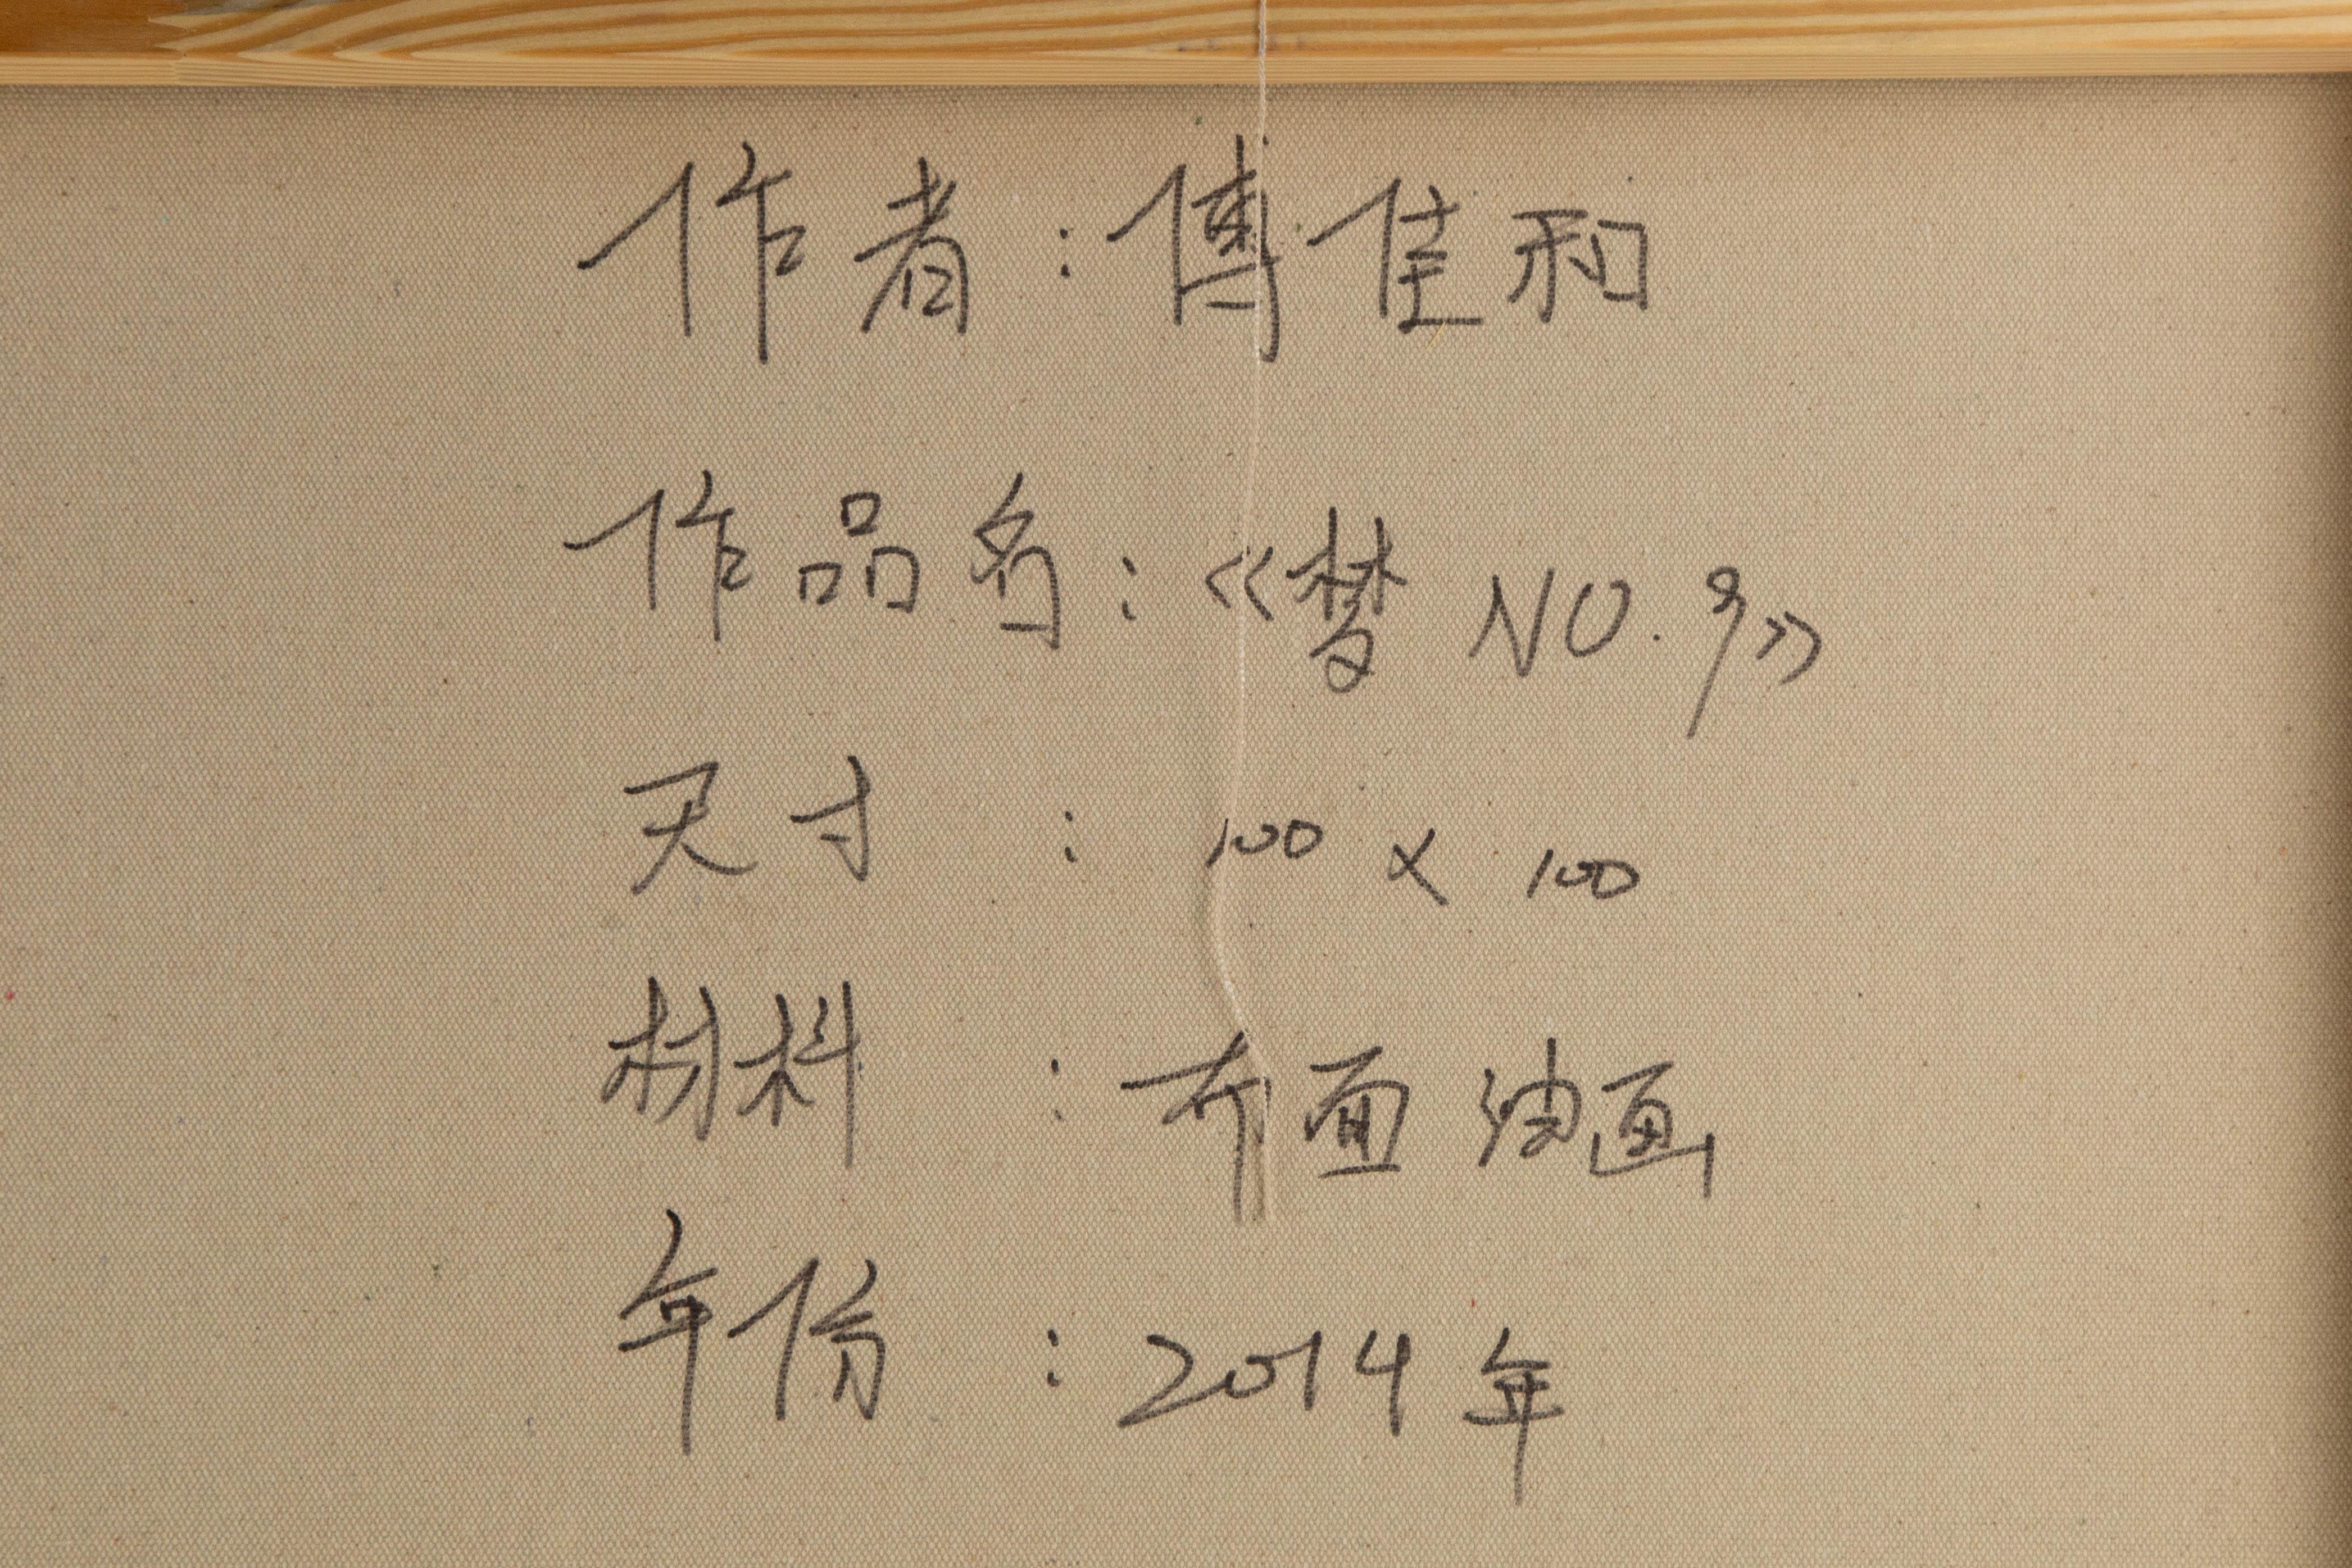 作者:傅佳和
作品名:《梦 NO.9》
尺寸:100 × 100
材料:布面油画
年份:2014年